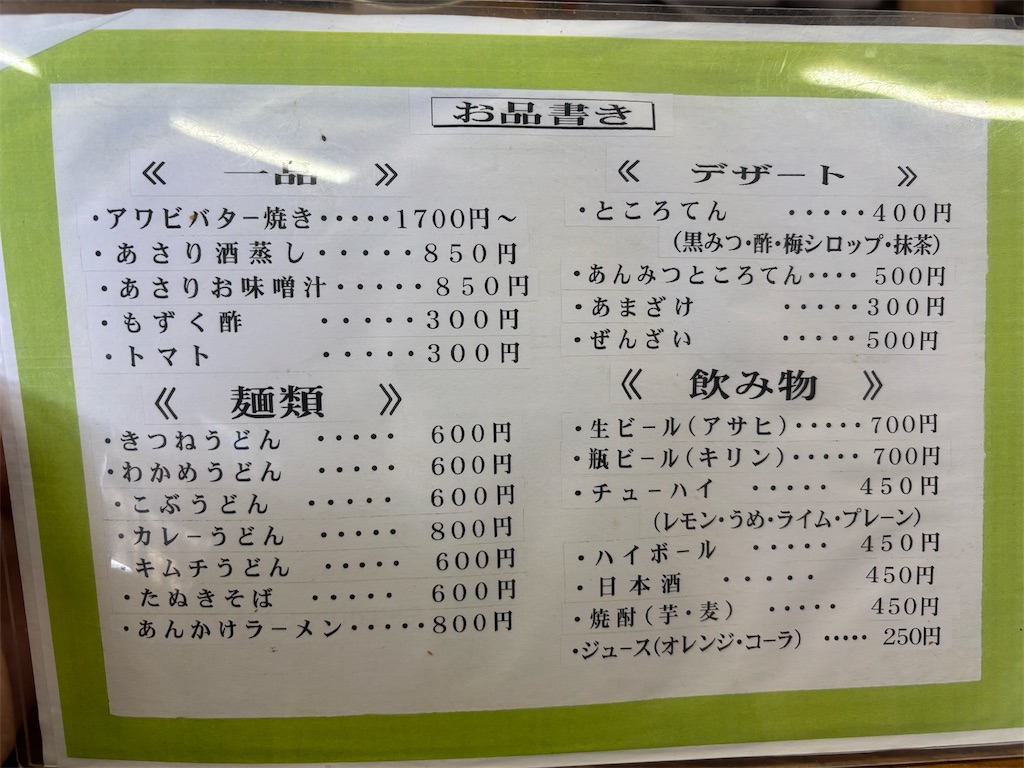 お品書き
≪ 一品 ≫
・アワビバター焼き・・・・・1700円～
・あさり酒蒸し・・・・・850円
・あさりお味噌汁・・・・・850円
・もずく酢 ・・・・・300円
・トマト ・・・・・300円
≪ 麺類 ≫
・きつねうどん ・・・・・ 600円
・わかめうどん ・・・・・ 600円
・こぶうどん ・・・・・ 600円
・カレーうどん ・・・・・ 800円
・キムチうどん ・・・・・ 600円
・たぬきそば ・・・・・ 600円
・あんかけラーメン・・・・・800円
≪ デザート ≫
・ところてん ・・・・・400円
（黒みつ・酢・梅シロップ・抹茶）
・あんみつところてん・・・・ 500円
・あまざけ ・・・・・300円
・ぜんざい ・・・・・500円
≪ 飲み物 ≫
・生ビール（アサヒ）・・・・・700円
・瓶ビール（キリン）・・・・・700円
・チューハイ ・・・・・ 450円
（レモン・うめ・ライム・プレーン）
・ハイボール ・・・・・ 450円
・日本酒 ・・・・・ 450円
・焼酎（芋・麦） ・・・・・ 450円
・ジュース（オレンジ・コーラ） ・・・・・ 250円